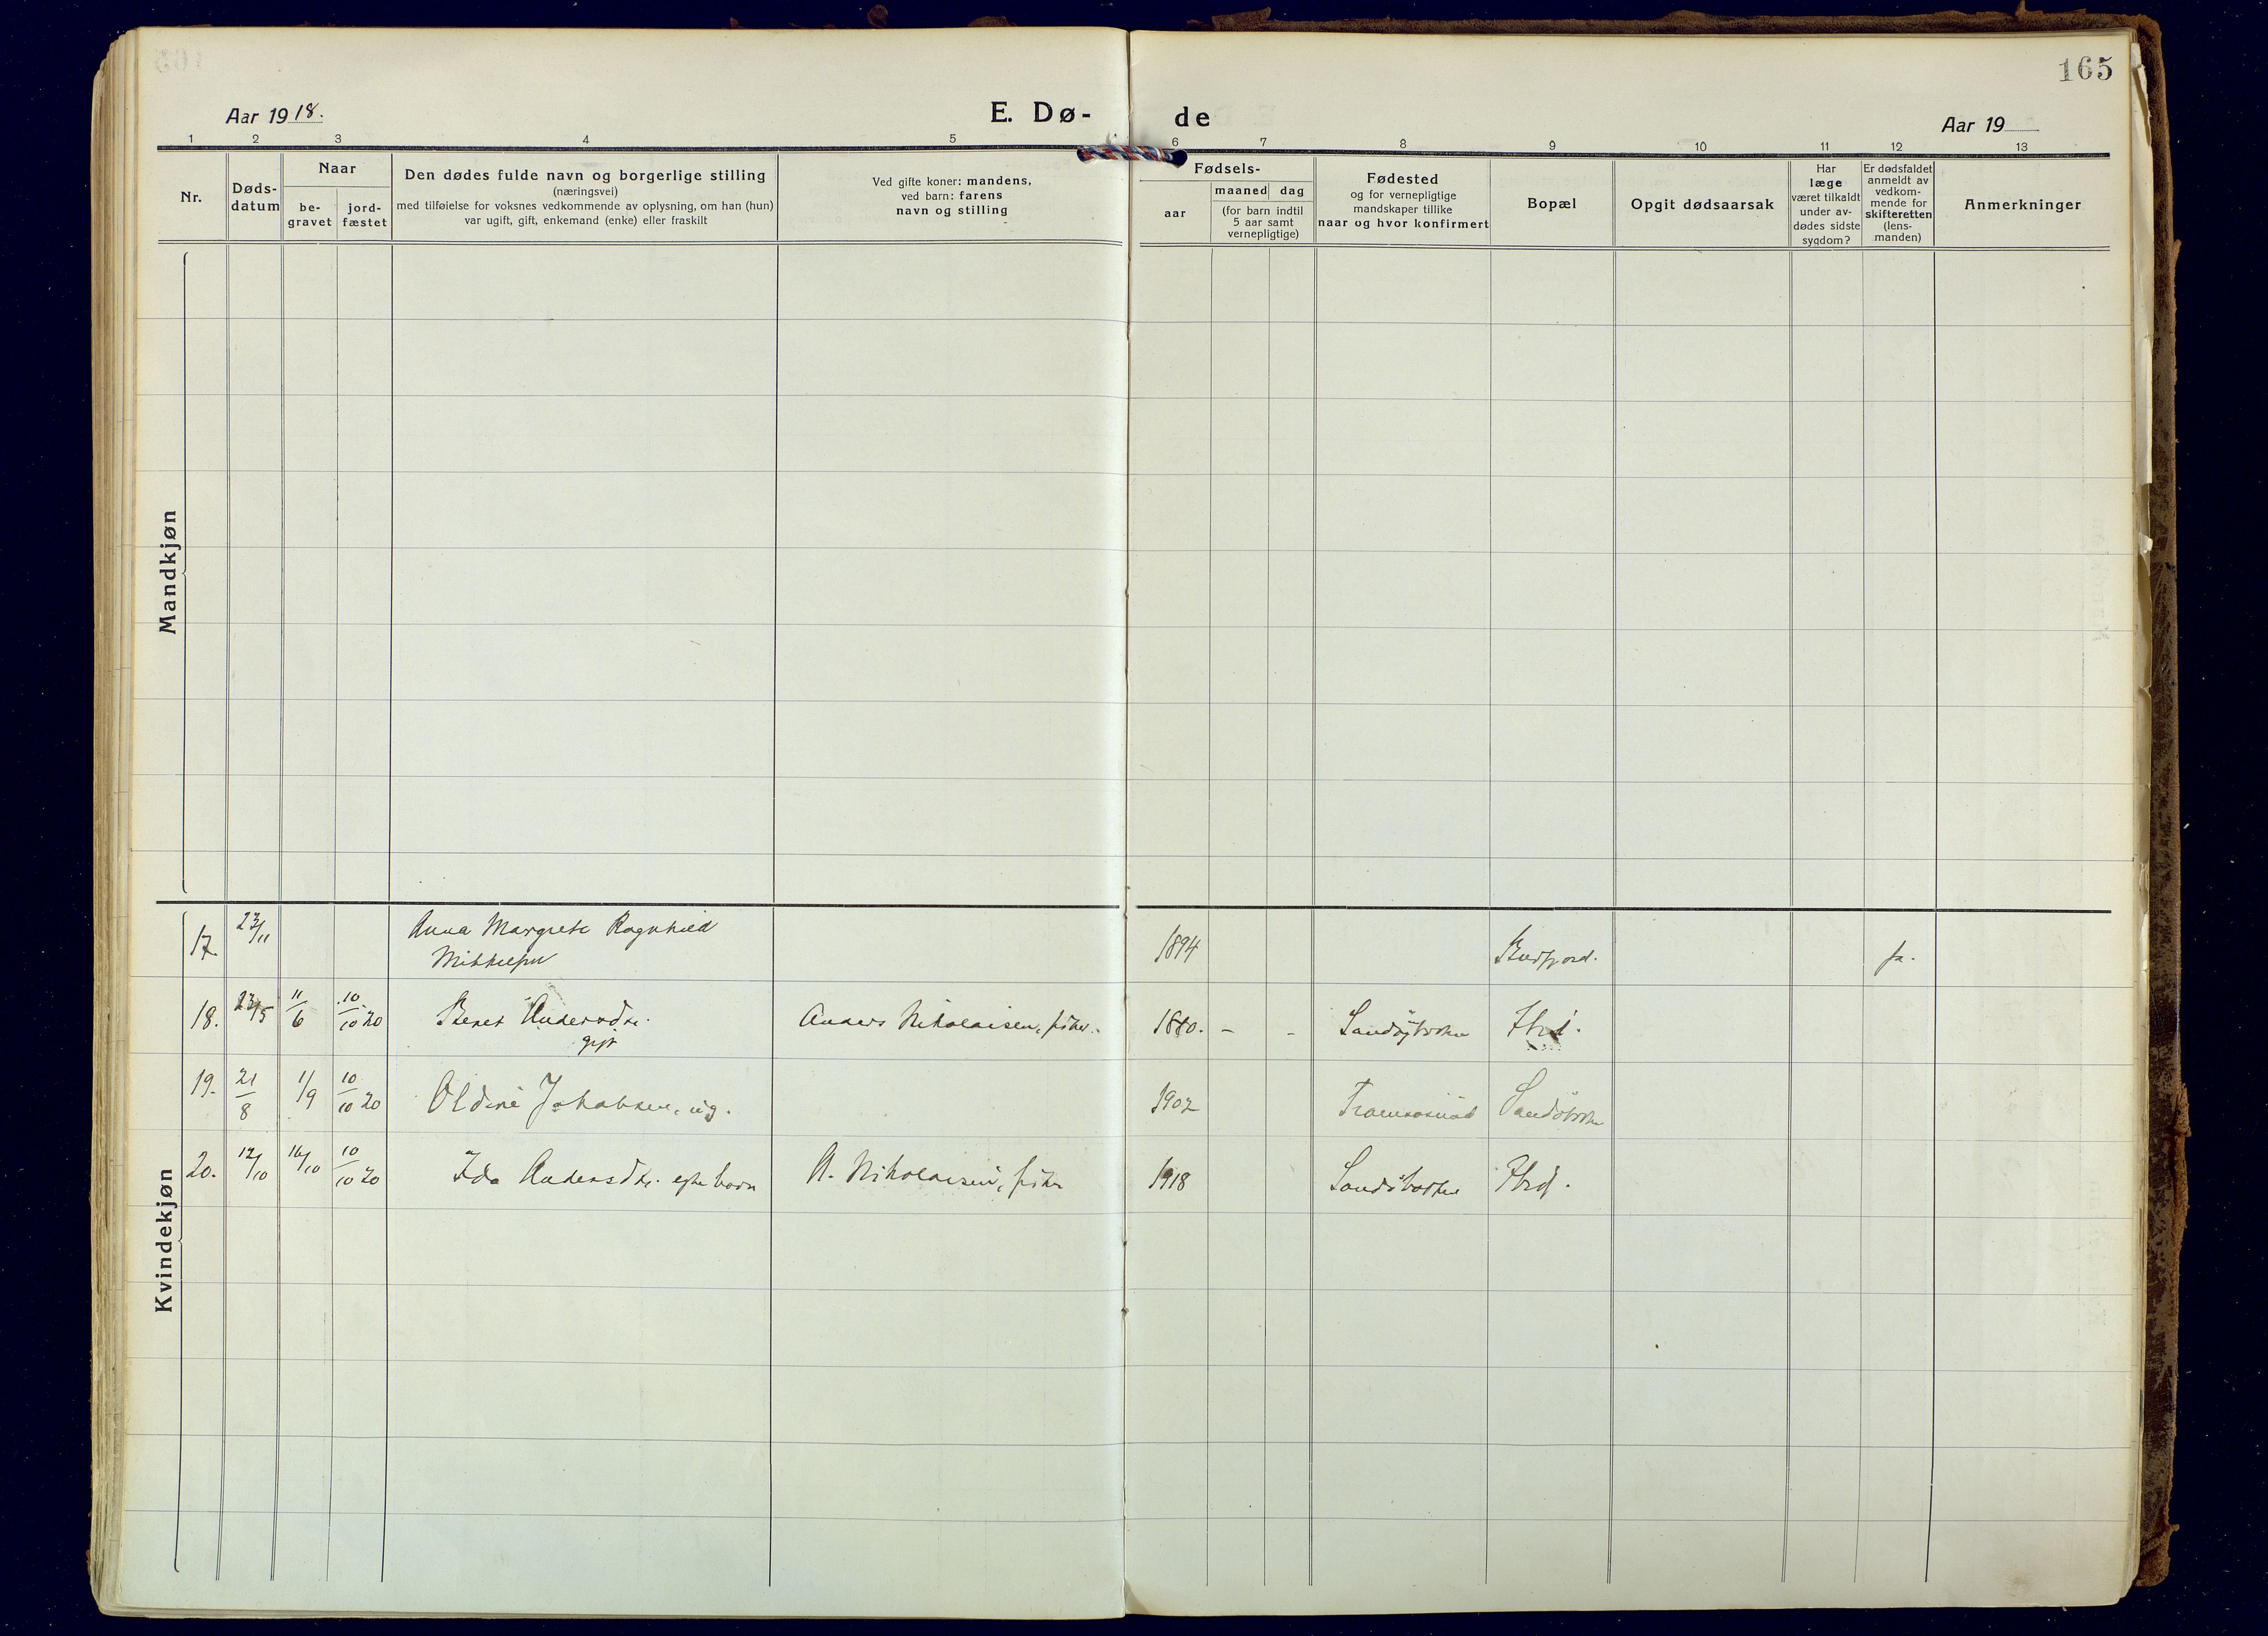 165
Aar 1918.
E. Dø-
de
Aar 19
1 2 3 4 5 6 7 8 9 10 11 12 13
Nr.
Døds-
datum
Naar
be-
gravet
jord-
fæstet
Den dødes fulde navn og borgerlige stilling
(næringsvei)
med tilføielse for voksnes vedkommende av oplysning, om han (hun)
var ugift, gift, enkemand (enke) eller fraskilt
Ved gifte koner: mandens,
ved barn: farens
navn og stilling
Fødsels-
aar
maaned dag
(for barn indtil
5 aar samt
vernepligtige)
Fødested
og for vernepligtige
mandskaper tillike
naar og hvor konfirmert
Bopæl
Opgit dødsaarsak
Har
læge
været tilkaldt
under av-
dødes sidste
sygdom?
Er dødsfaldet
anmeldt av
vedkom-
mende for
skifteretten
(lens-
manden)
Anmerkninger
Mandkjøn
Kvindekjøn
17. 23/11 Anna Margrete Ragnhild 1894 ja.
Mikkelsen
18. 23/5 11/6 10/10 20 Beret Andersdtr. Anders Nikolaisen, fisker. 1880. - -
gift
19. 21/8 11/9 10/10 20 Oldine Jakobsen, ug. 1902
20. 12/10 16/10 10/10 20 Ida Andersdtr. A. Nikolaisen, fisker 1918